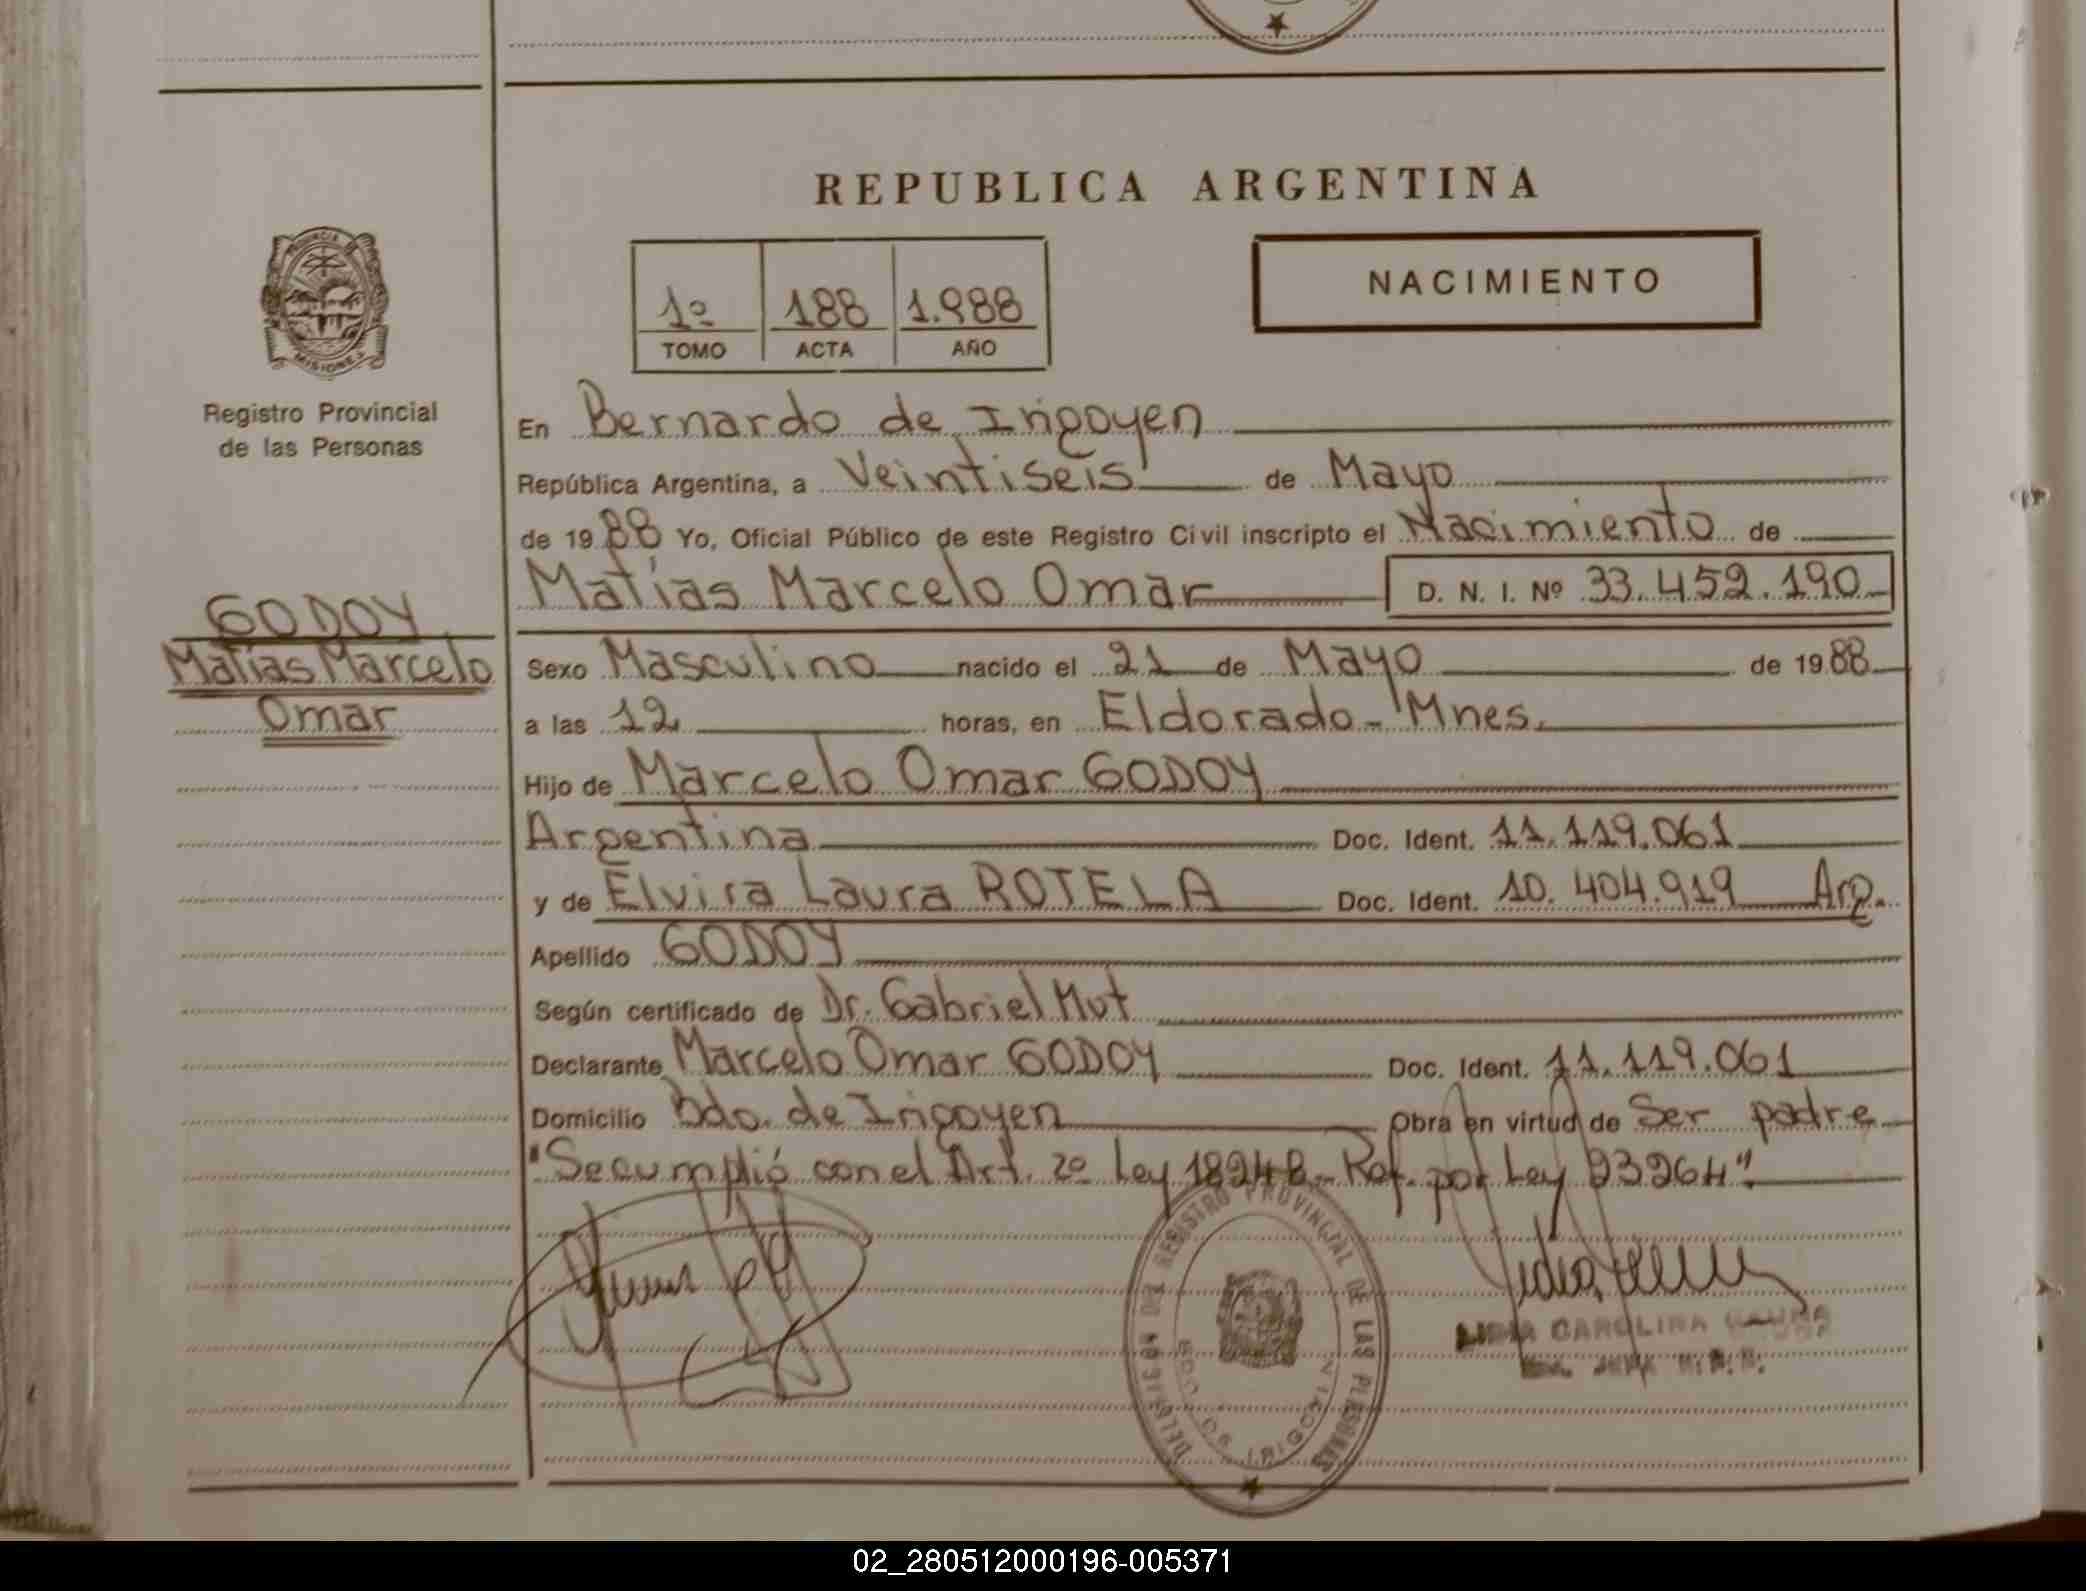 REPUBLICA ARGENTINA
PROVINCIA DE
MISIONES
Registro Provincial
de las Personas
1º 188 1.988
TOMO ACTA AÑO
NACIMIENTO
En Bernardo de Irigoyen
República Argentina, a Veintiseis de Mayo
de 1988 Yo, Oficial Público de este Registro Civil inscripto el Nacimiento de
Matías Marcelo Omar D. N. I. Nº 33.452.190
GODOY
Matías Marcelo
Omar
Sexo Masculino nacido el 21 de Mayo de 1988
a las 12 horas, en Eldorado - Mnes.
Hijo de Marcelo Omar GODOY
Argentina Doc. Ident. 11.119.061
y de Elvira Laura ROTELA Doc. Ident. 10.404.919 Arg.
Apellido GODOY
Según certificado de Dr. Gabriel Mut
Declarante Marcelo Omar GODOY Doc. Ident. 11.119.061
Domicilio Bdo. de Irigoyen Obra en virtud de Ser padre
"Se cumplió con el Art. 2º Ley 18248 - Ref. por Ley 23264".
DELEGACION DEL REGISTRO PROVINCIAL DE LAS PERSONAS
BDO. DE IRIGOYEN
LIDIA CAROLINA
02_280512000196-005371